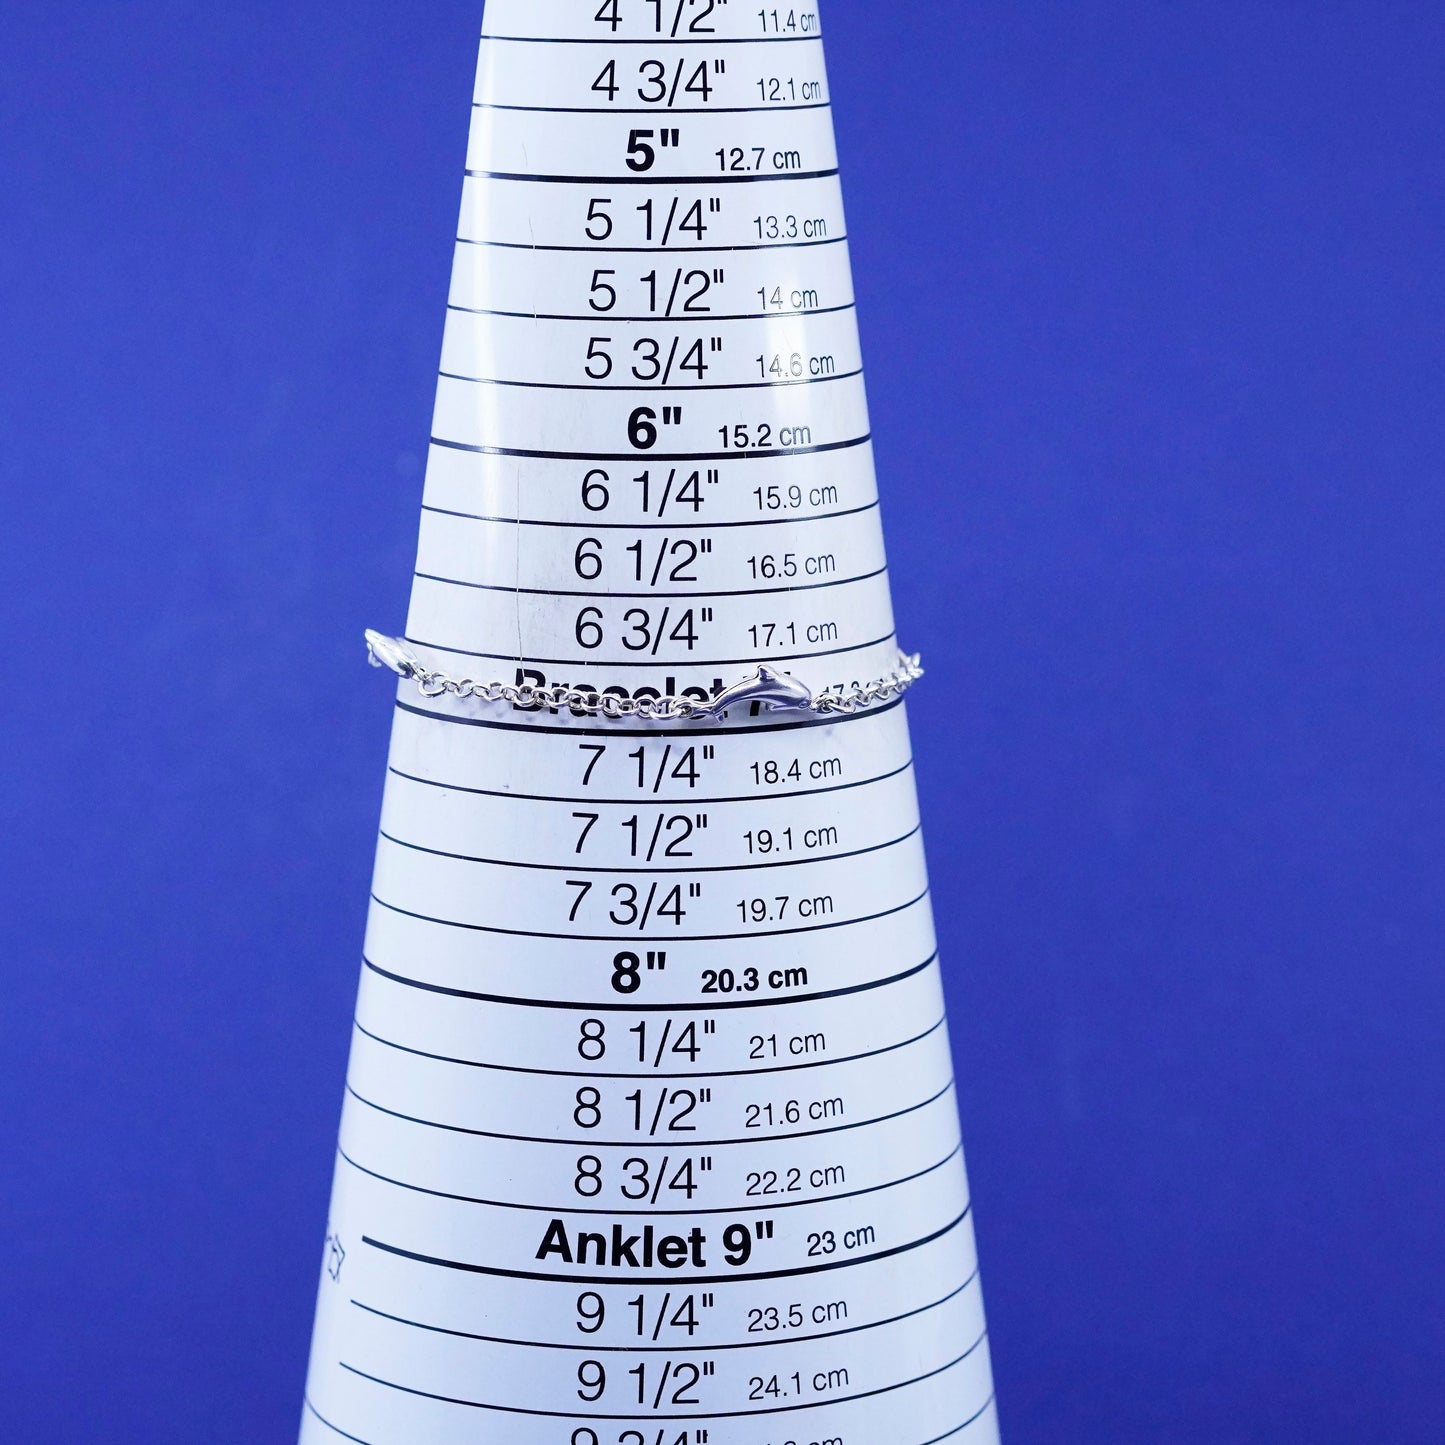 4 1/2" 11.4 cm
4 3/4" 12.1 cm
5" 12.7 cm
5 1/4" 13.3 cm
5 1/2" 14 cm
5 3/4" 14.6 cm
6" 15.2 cm
6 1/4" 15.9 cm
6 1/2" 16.5 cm
6 3/4" 17.1 cm
Bracelet 7"
7 1/4" 18.4 cm
7 1/2" 19.1 cm
7 3/4" 19.7 cm
8" 20.3 cm
8 1/4" 21 cm
8 1/2" 21.6 cm
8 3/4" 22.2 cm
Anklet 9" 23 cm
9 1/4" 23.5 cm
9 1/2" 24.1 cm
9 3/4"